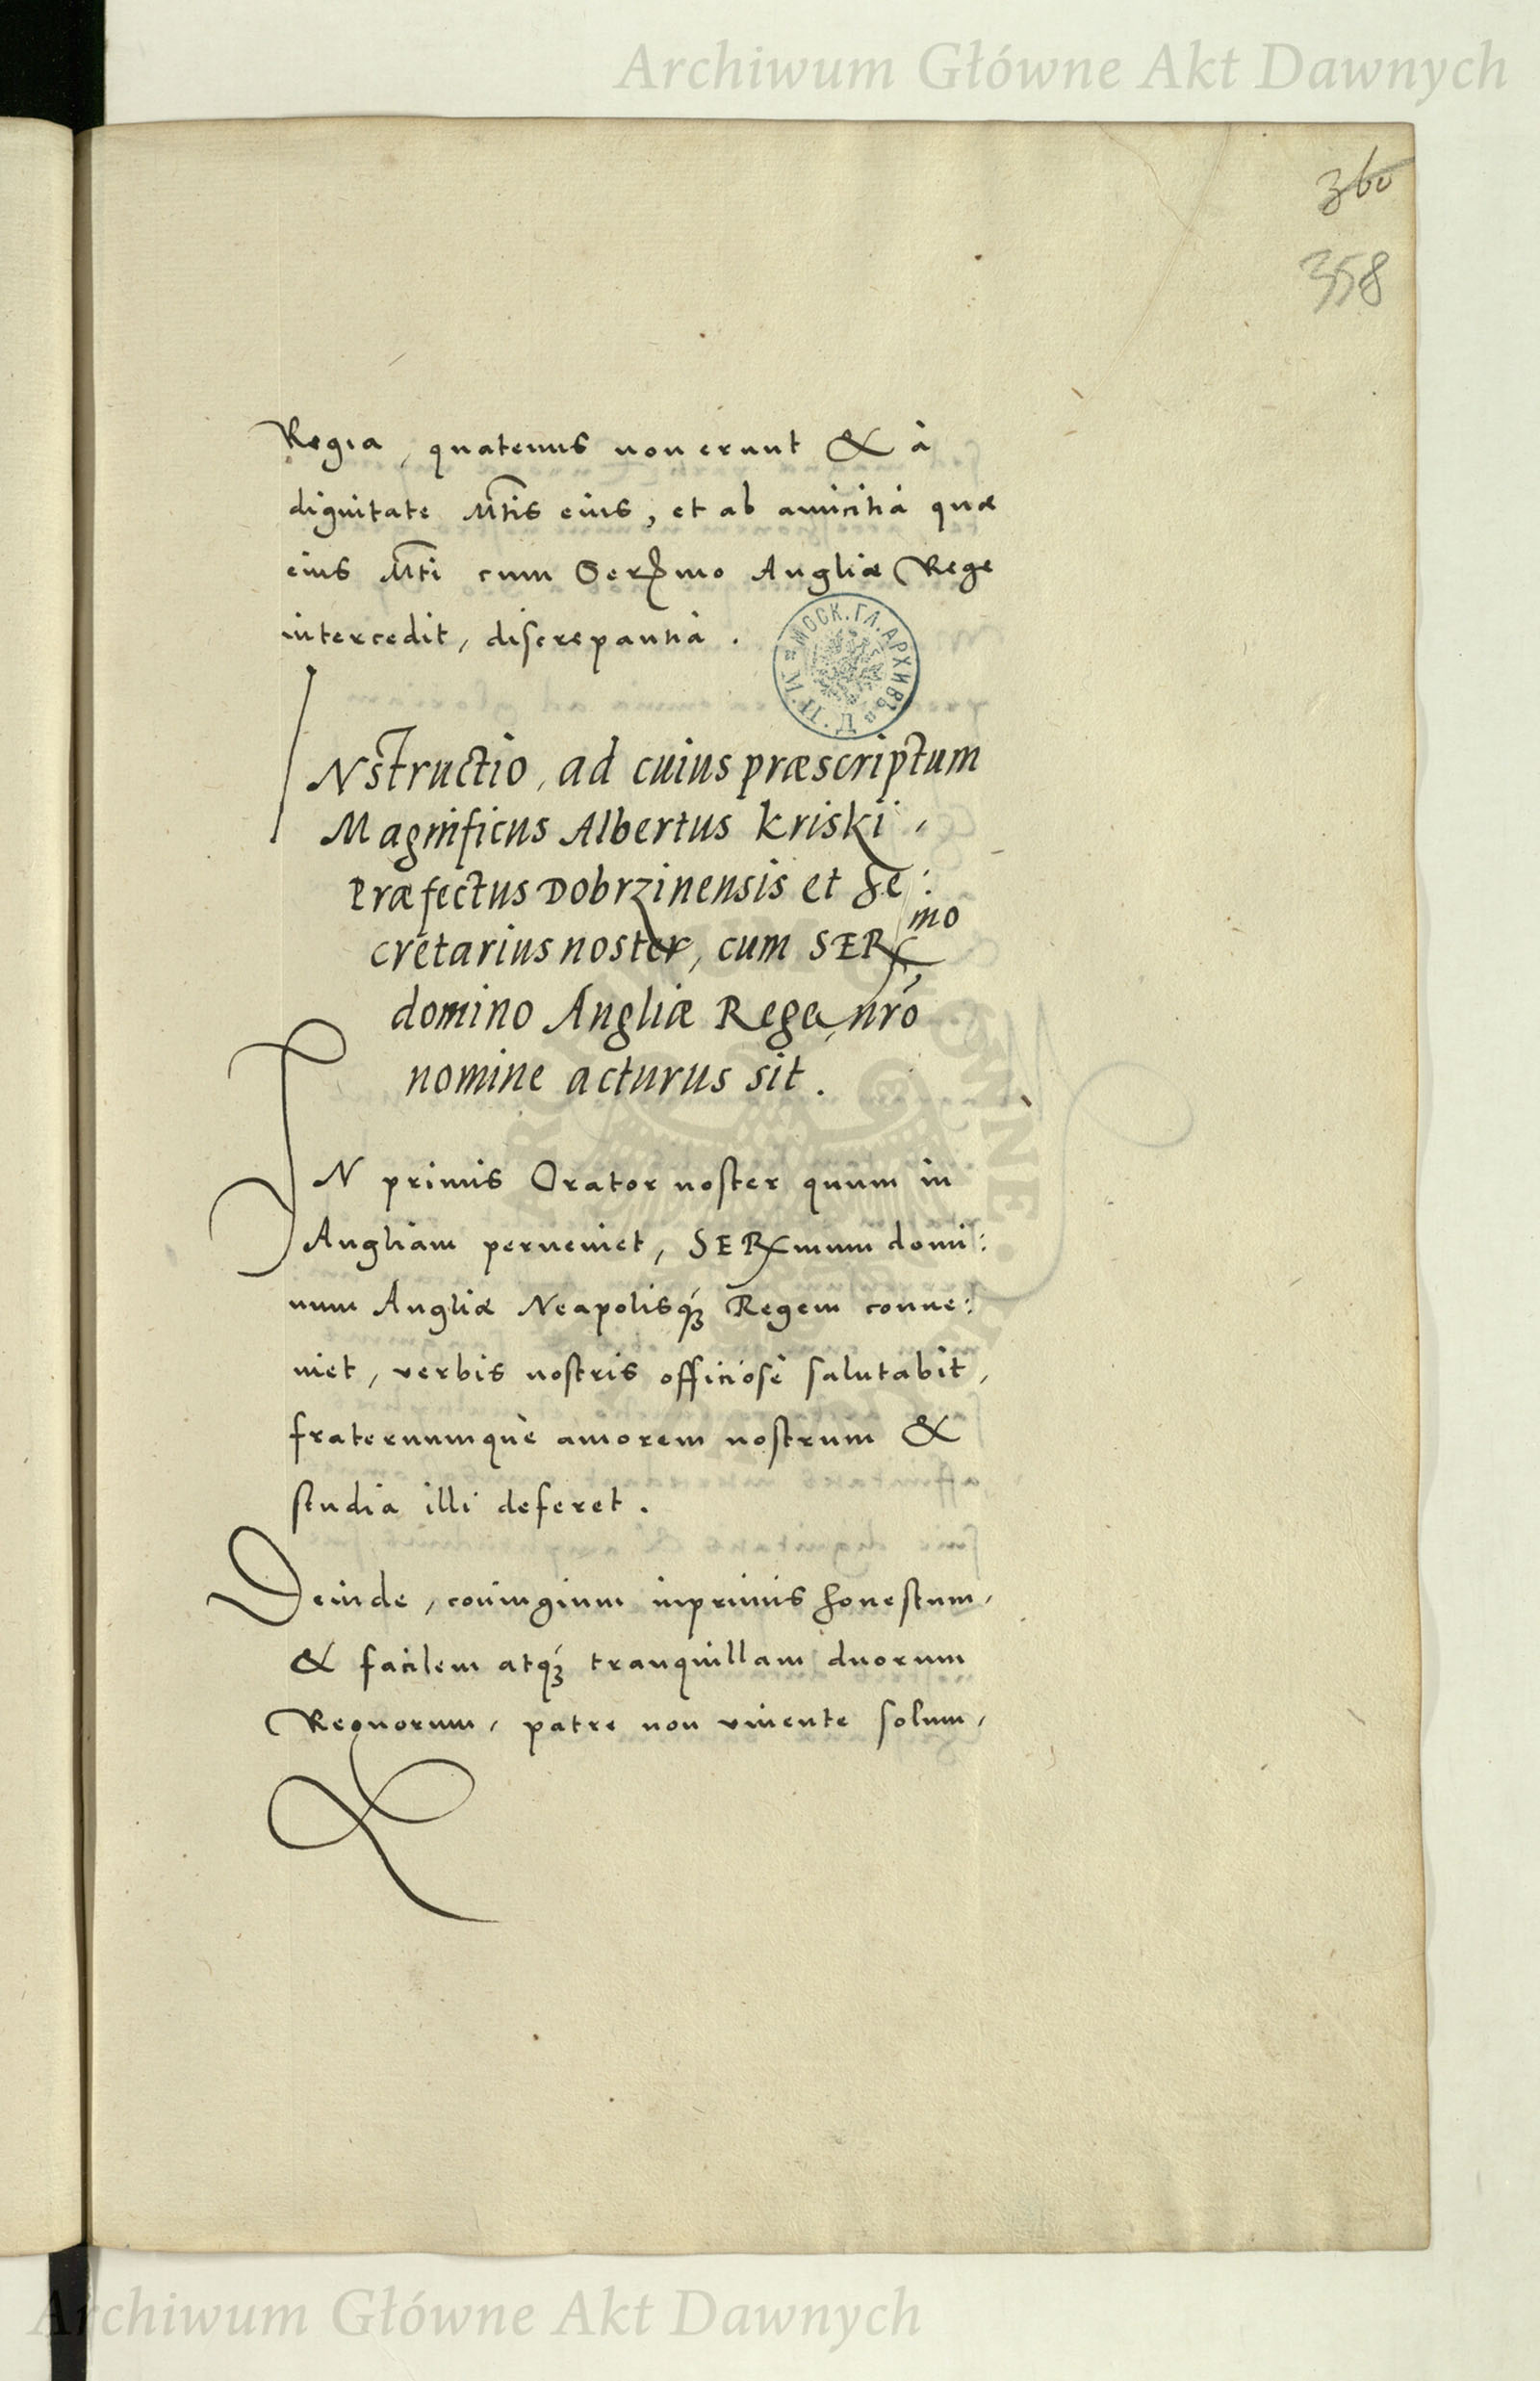 Archiwum Główne Akt Dawnych
360
358
Regia, quatenus non erunt & à
dignitate Mtis eius, et ab amicitia quæ
eius Mti cum Sermo Angliæ Rege
intercedit, discrepantia.
МОСК. ГЛ. АРХИВЪ
INstructio, ad cuius præscriptum
Magnificus Albertus Kriski,
Præfectus Dobrzinensis et Se:
cretarius noster, cum SERmo
domino Angliæ Rege, nró
nomine acturus sit.
IN primis Orator noster quum in
Angliam perveniet, SERmum domi:
num Angliæ Neapolisq́ꝫ Regem conve:
niet, verbis nostris officiosè salutabit,
fraternumquè amorem nostrum &
studia illi deferet.
Deinde, coniugium inprimis honestum,
& facilem atq́ꝫ tranquillam duorum
Regnorum, patre non vivente solum,
Archiwum Główne Akt Dawnych